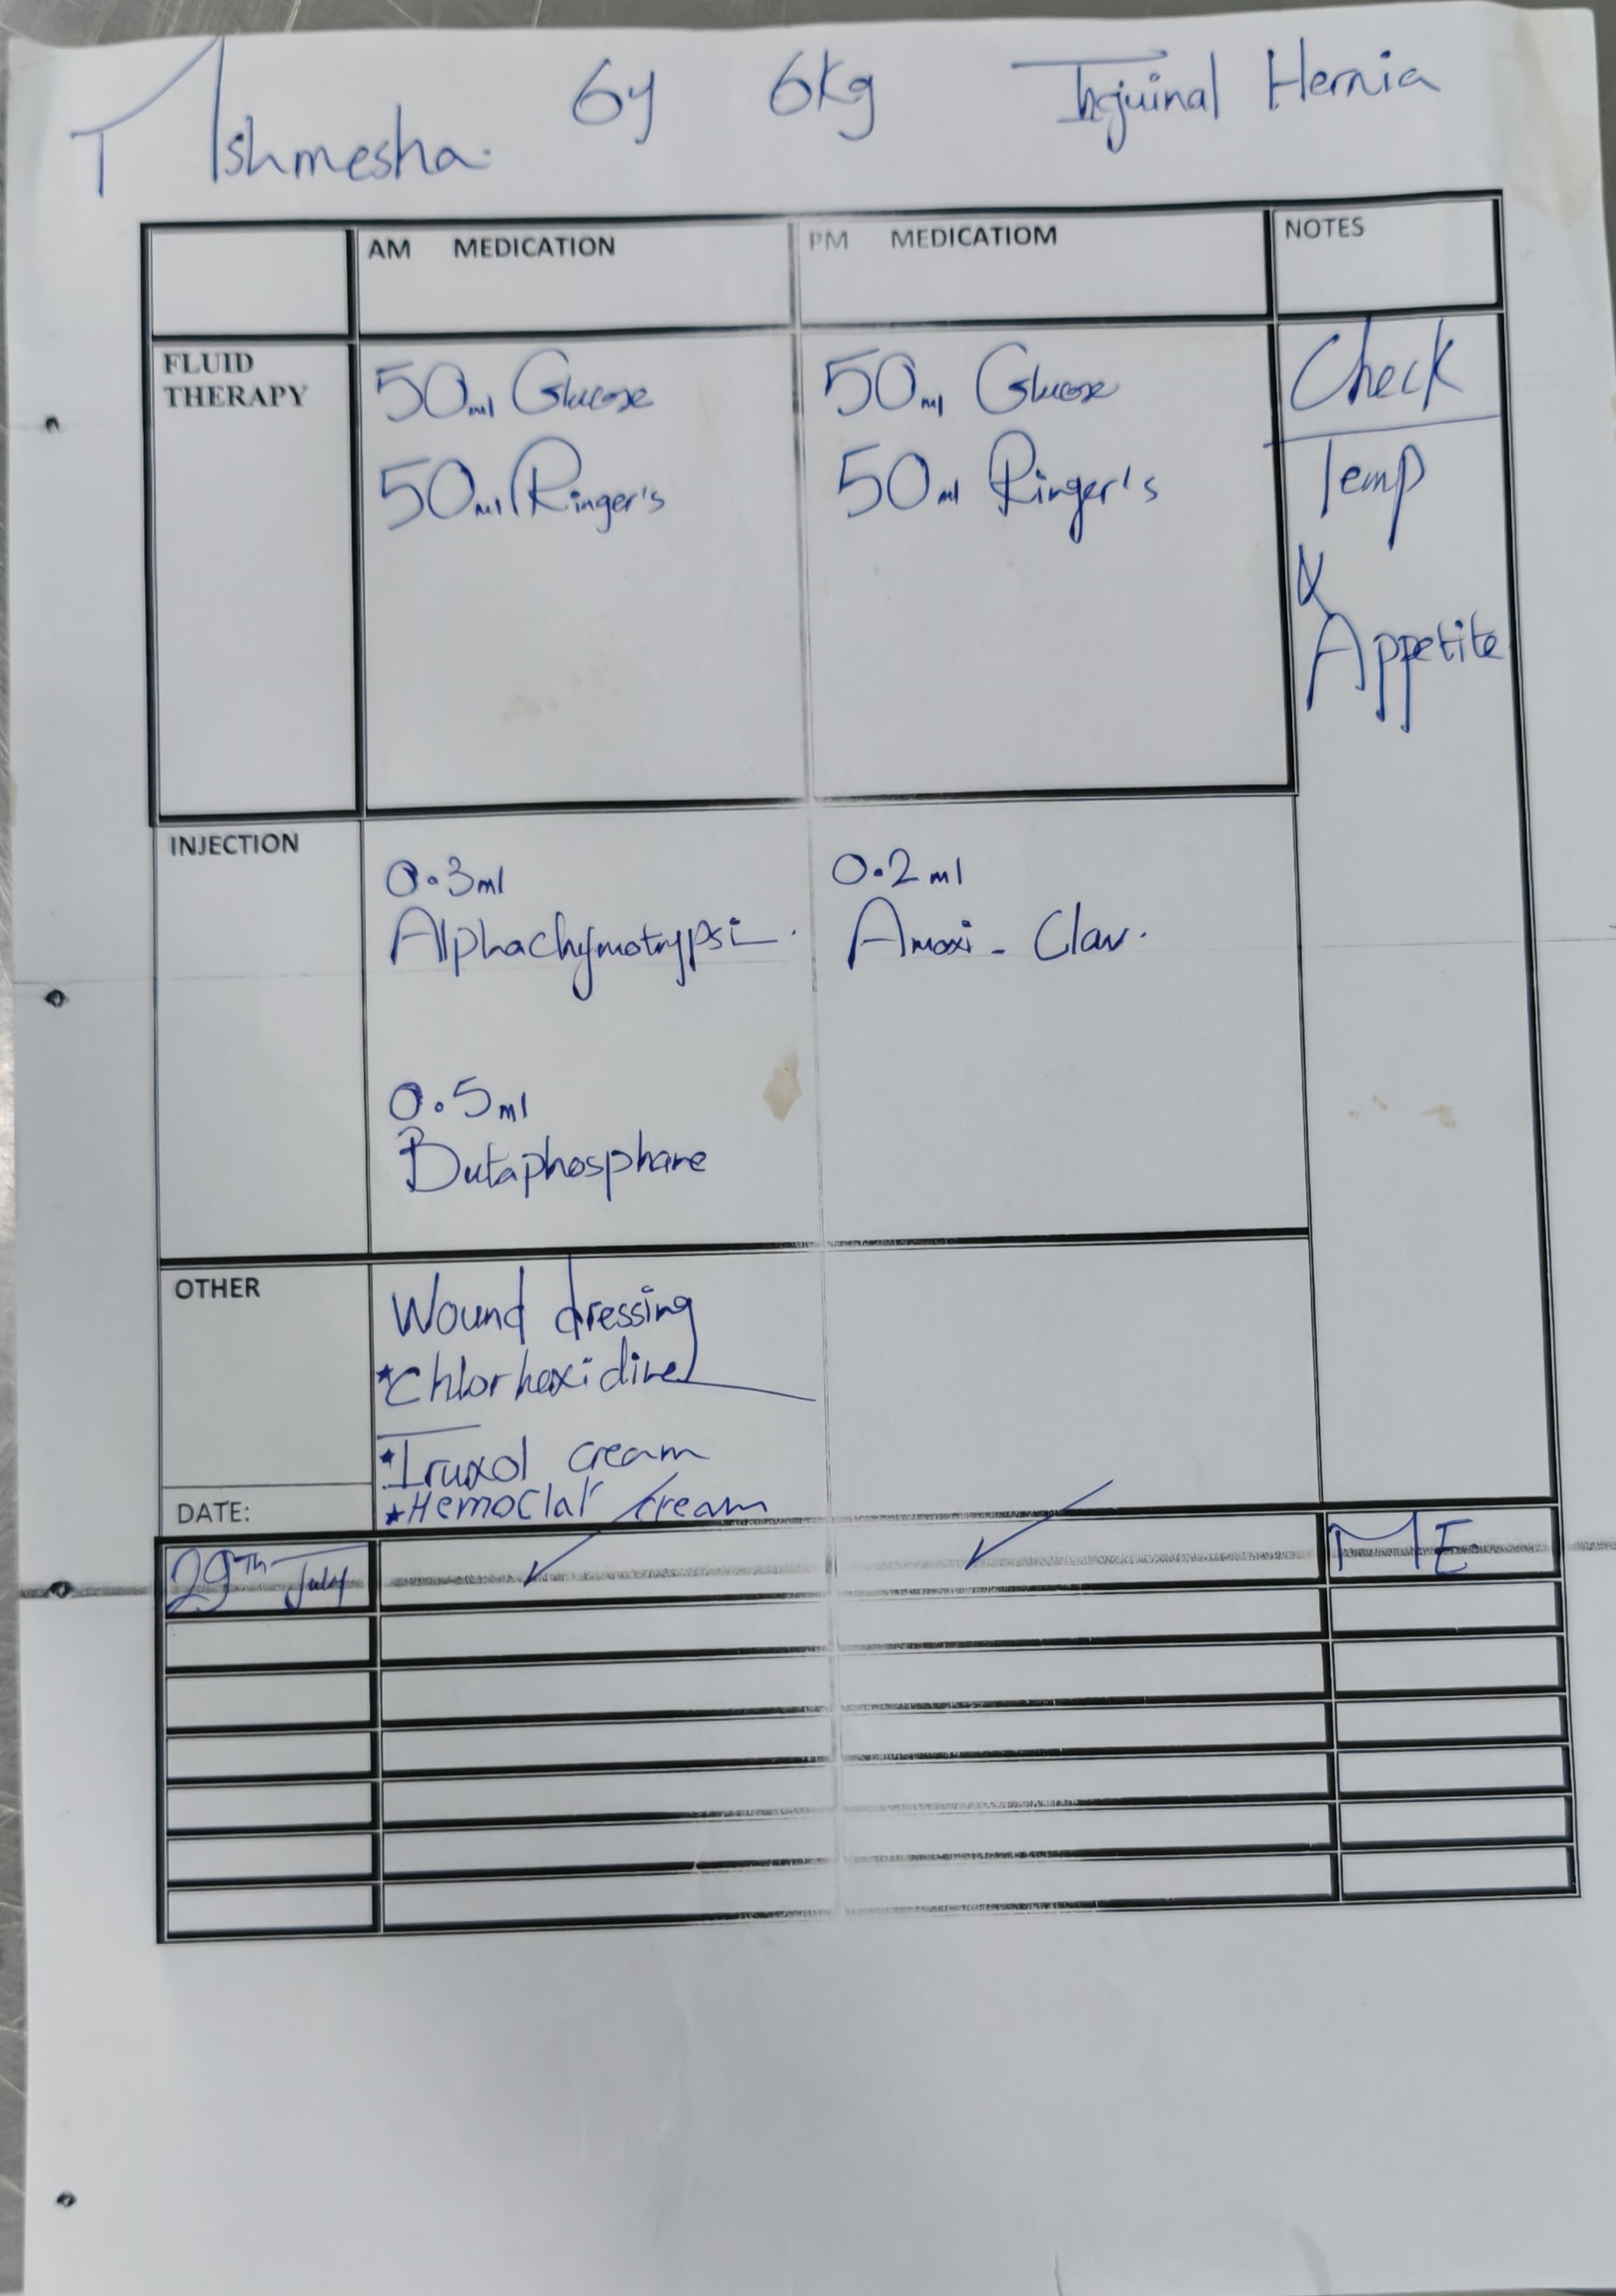 T Ishmesha. 6y 6kg Inguinal Hernia
AM MEDICATION PM MEDICATIOM NOTES
FLUID THERAPY
50ml Glucose
50ml Ringer's
50ml Glucose
50ml Ringer's
Check
Temp
&
Appetite
INJECTION
0.3ml
Alphachymotrypsi
0.5ml
Butaphosphane
0.2ml
Amoxi - Clav.
OTHER
Wound dressing
*Chlorhexidine
*Iruxol cream
*Hemoclar cream
DATE:
29Th July ME